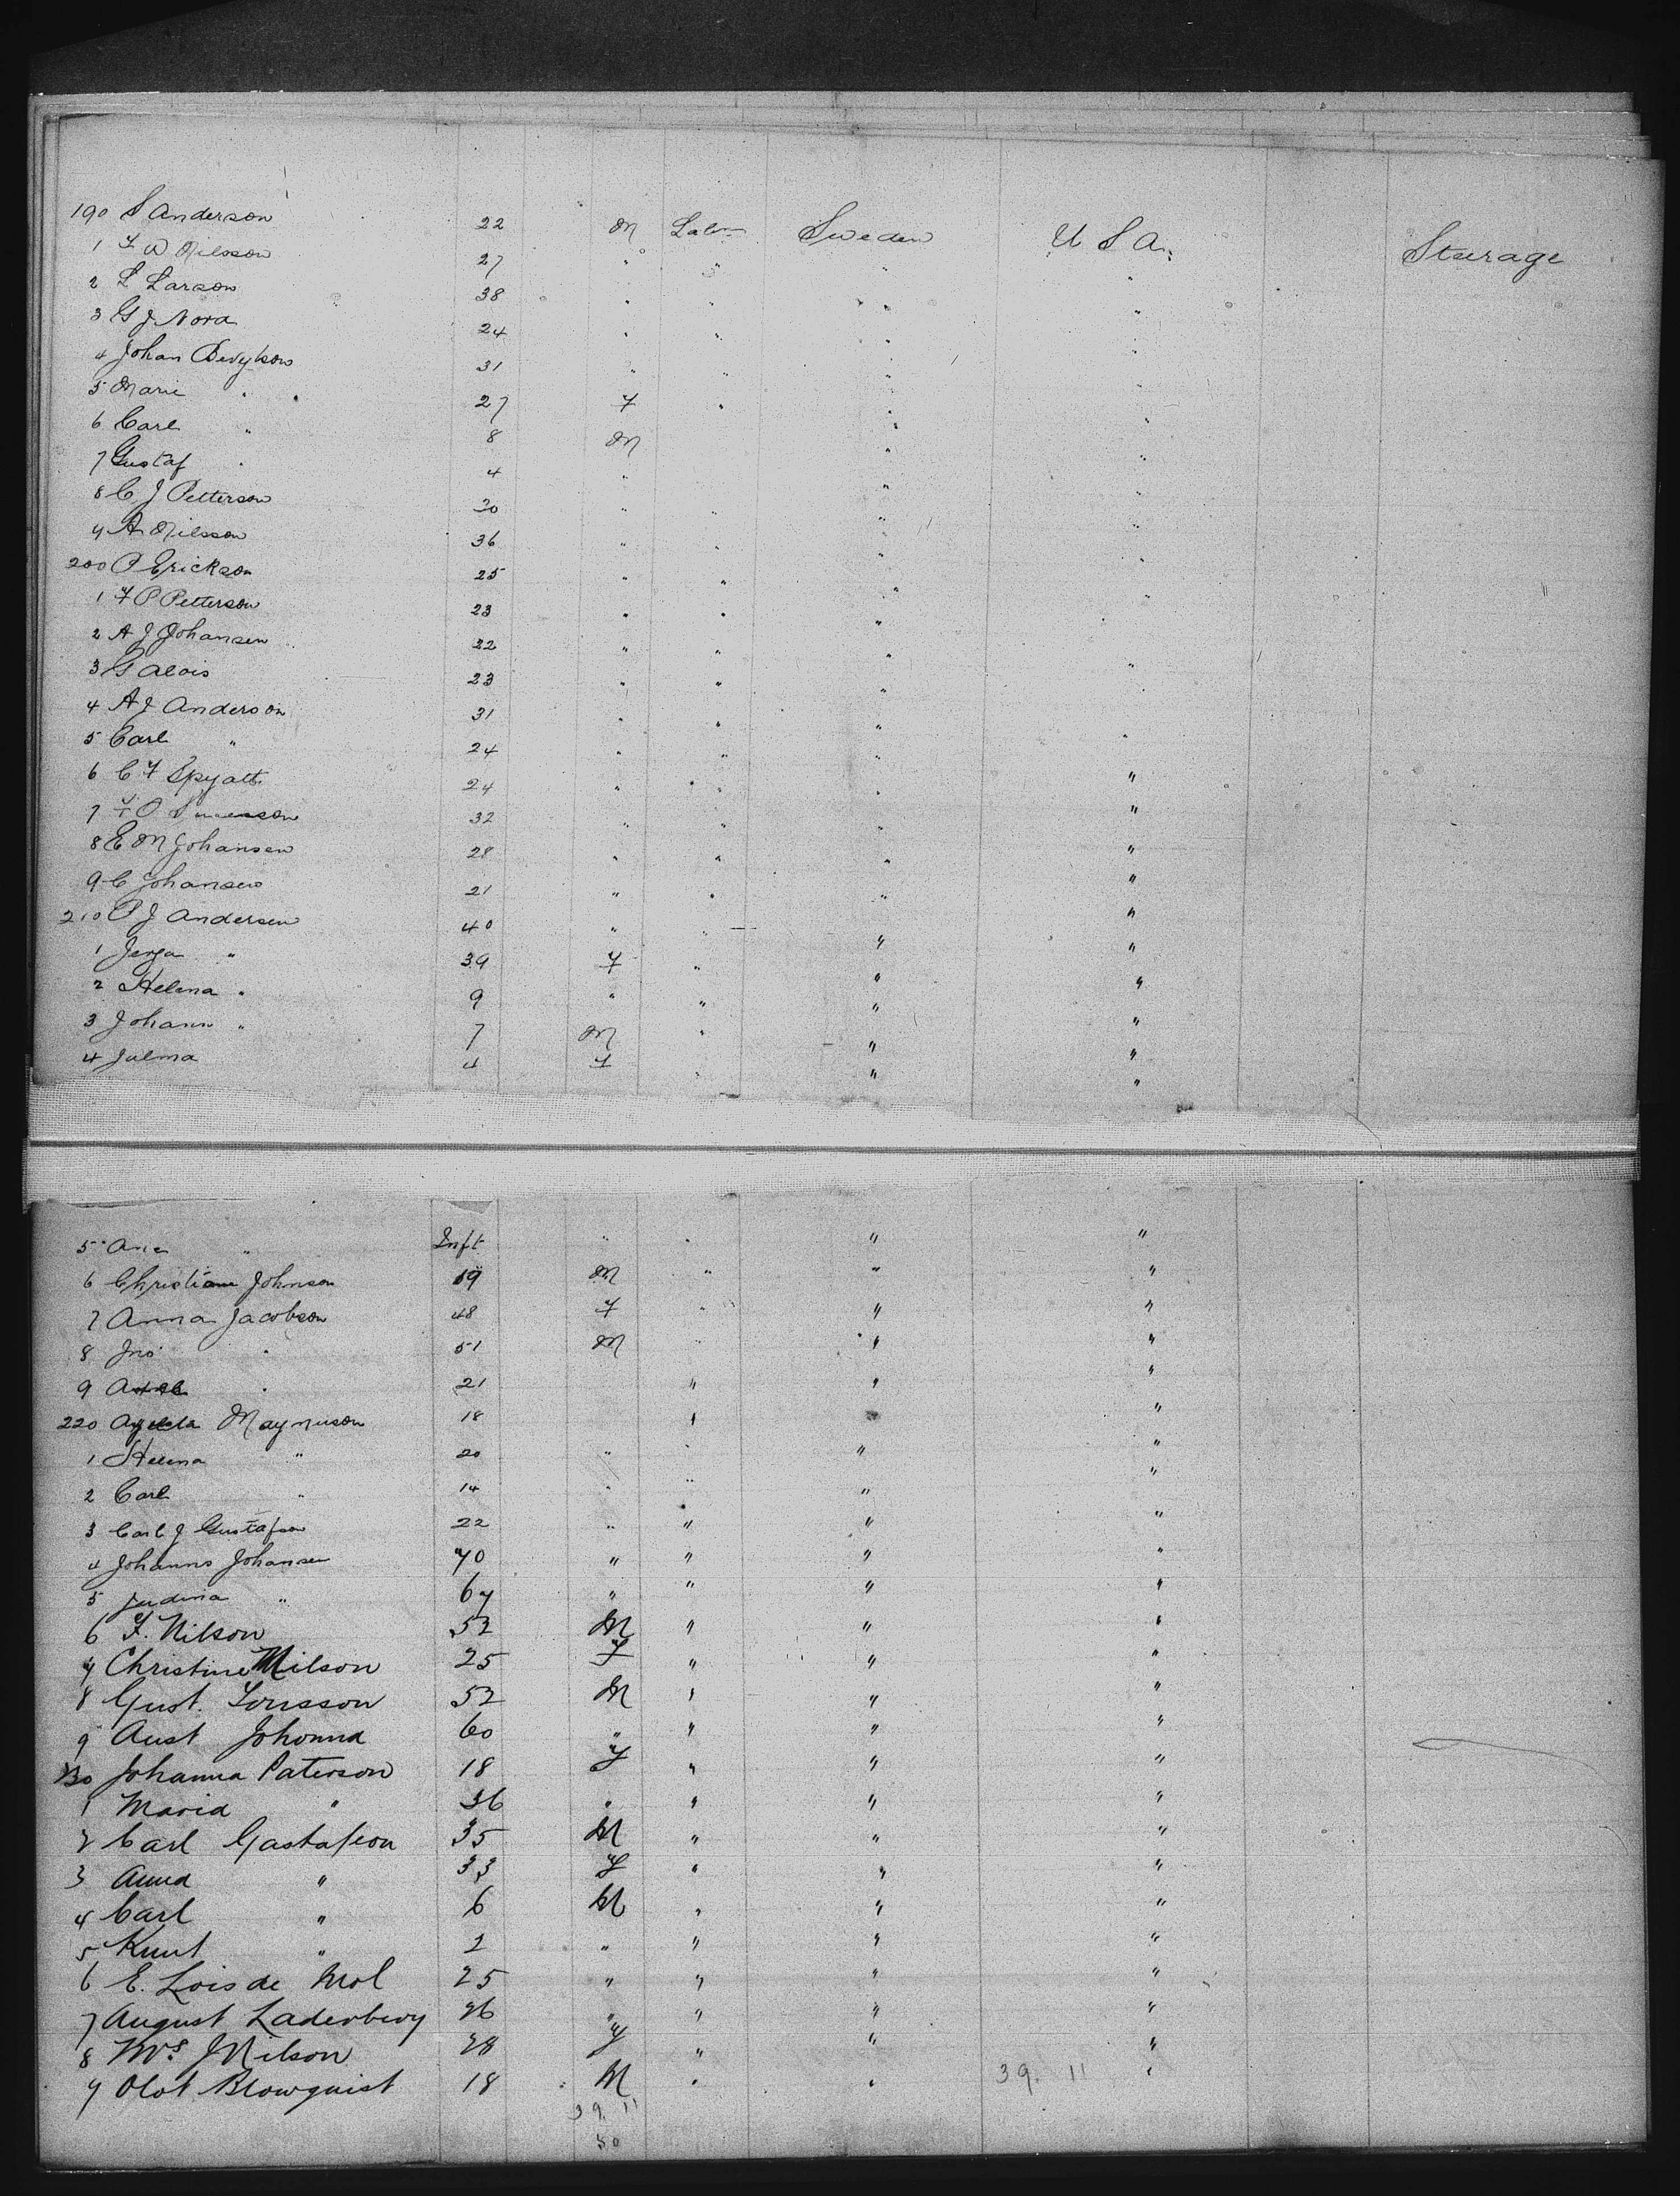 190 S Anderson 22 M Labr Sweden U S A. Steerage
1 F W Nilsson 27 " " " "
2 L Larson 38 " " " "
3 G J Nora 24 " " " "
4 Johan 31 " " " "
5 Marie " 27 F " " "
6 Carl " 8 M " "
7 Gustaf " 4 " " "
8 C J Petterson 30 " " " "
9 A Nilsson 36 " " " "
200 P Erickson 25 " " " "
1 F P Petterson 23 " " " "
2 A J Johansen 22 " " " "
3 G Alois 23 " " " "
4 A J Anderson 31 " " " "
5 Carl " 24 " " " "
6 C F 24 " " " "
7 F O 32 " " " "
8 E M Johansen 28 " " " "
9 C Johansen 21 " " " "
210 P J Andersen 40 " " " "
1 " 39 F " " "
2 Helena " 9 " " " "
3 Johann " 7 M " " "
4 Julma 4 F " " "
5 Ana " Inft " " " "
6 Christian Johnson 19 M " " "
7 Anna Jacobson 48 F " " "
8 Jno " 51 M " " "
9 " 21 " " "
220 Magnuson 18 " " "
1 Helena " 20 " " " "
2 Carl " 14 " " " "
3 Carl J Gustafson 22 " " " "
4 Johanns Johansen 70 " " " "
5 " 67 " " " "
6 F. Nilson 52 M " " "
7 Christine Nilson 25 F " " "
8 Gust. 52 M " " "
9 Aust Johonna 60 " " " "
230 Johanna Paterson 18 F " " "
1 Maria " 36 " " " "
2 Carl Gastafson 35 M " " "
3 Anna " 33 F " " "
4 Carl " 6 M " " "
5 Knut " 2 " " " "
6 E. Lois de Mol 25 " " " "
7 August Laderberg 26 " " " "
8 Mrs. J Nilson 28 F " " "
9 Olof Blowquist 18 M " " "
39. 11
39. 11
50